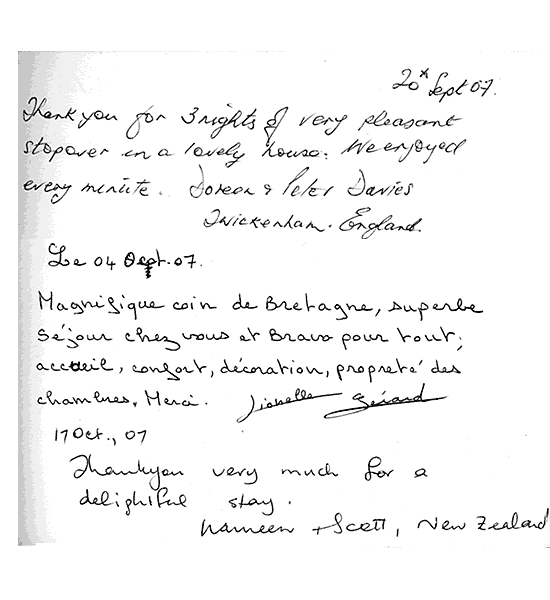 20th Sept 07.
Thank you for 3 nights of very pleasant
stopover in a lovely house. We enjoyed
every minute. Doreen & Peter Davies
Twickenham. England.
Le 04 Oct. 07.
Magnifique coin de Bretagne, superbe
séjour chez vous et Bravo pour tout;
accueil, confort, décoration, propreté des
chambres. Merci. Lionelle Gérard
17 Oct., 07
Thankyou very much for a
delightful stay.
+ Scott, New Zealand